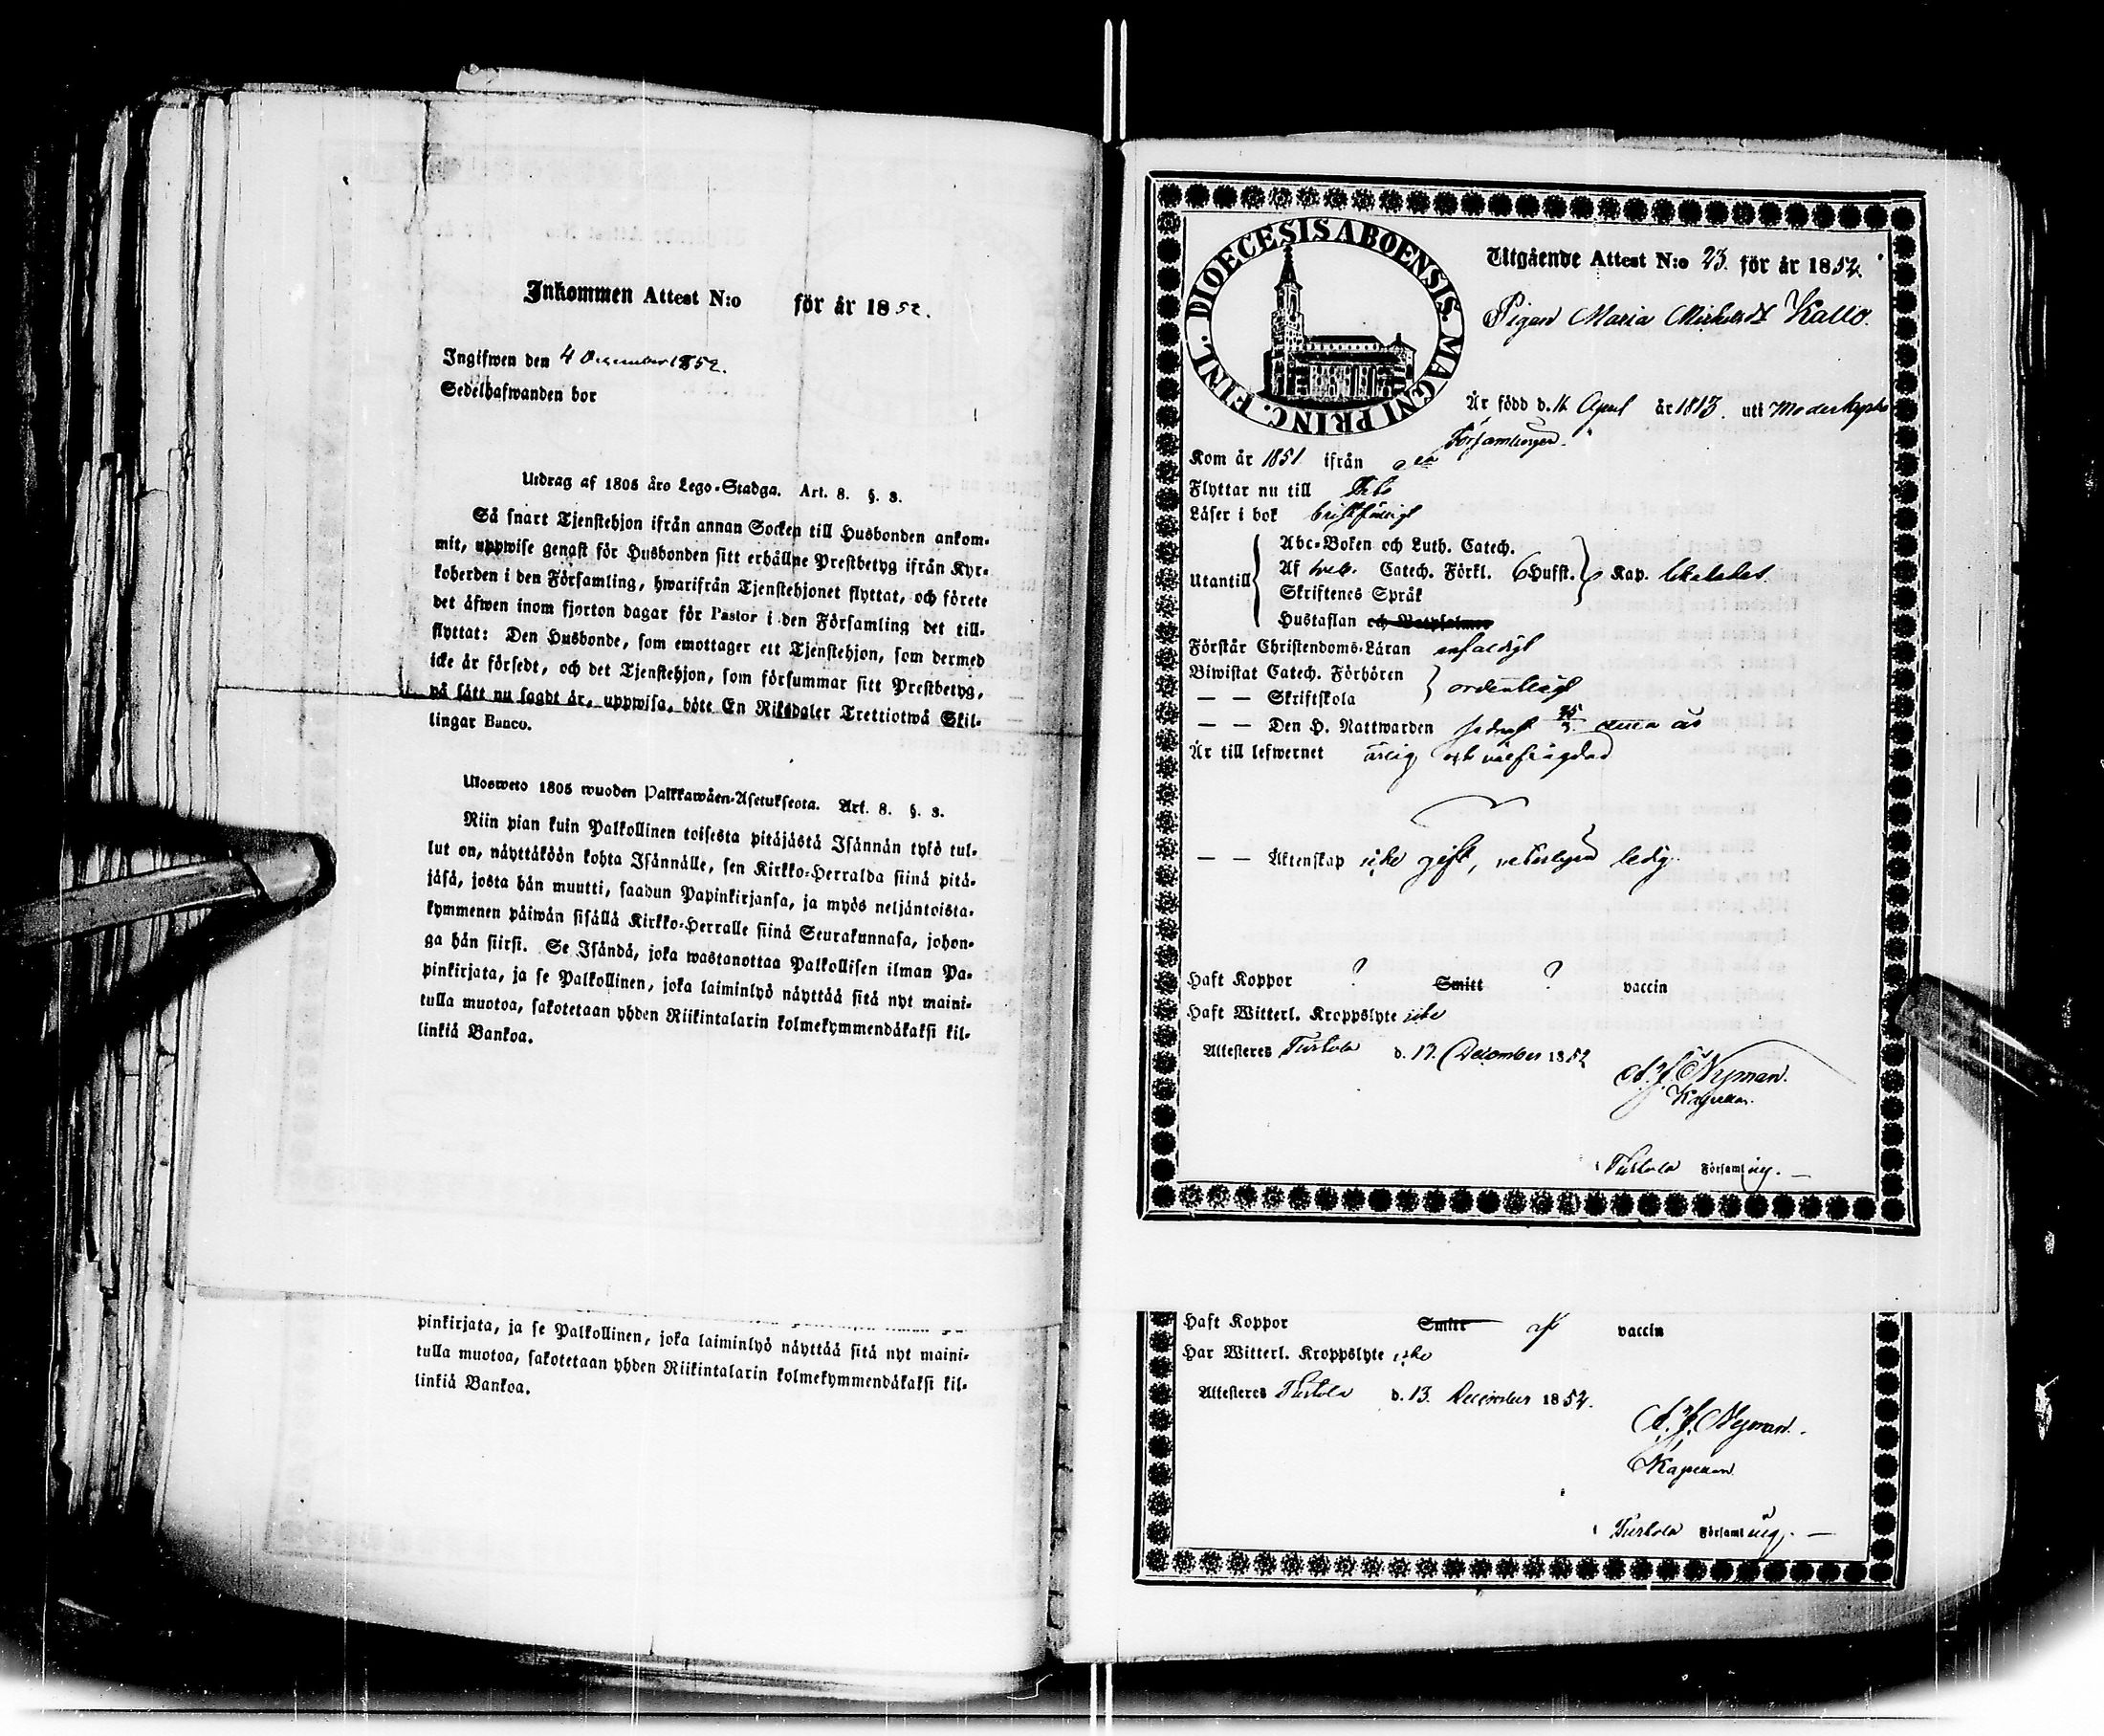 Inkommen Attest N:o för år 1852.
Ingifwen den 4 December 1852.
Sedelhafwanden bor
Utdrag af 1805 åro Lego-Stadga. Art. 8. §. 3.
Så snart Tjenstehjon ifrån annan Socken till Husbonden ankom-
mit, uppwise genast för Husbonden sitt erhållne Prestbetyg ifrån Kyr-
koherden i den Församling, hwarifrån Tjenstehjonet flyttat, och förete
det äfwen inom fjorton dagar för Pastor i den Församling det till-
flyttat: Den Husbonde, som emottager ett Tjenstehjon, som dermed
icke är försedt, och det Tjenstehjon, som försummar sitt Prestbetyg,
på sätt nu sagdt är, uppwisa, böte En Riksdaler Trettiotwå Skil-
lingar Banco.
Ulosweto 1805 wuoden Palkkawäen-Asetuksesta. Art. 8. §. 3.
Niin pian kuin Palkollinen toisesta pitäjästä Isännän tykö tul-
lut on, näyttäköön kohta Isännälle, sen Kirkko-Herralda siinä pitä-
jäsä, josta hän muutti, saadun Papinkirjansa, ja myös neljäntoista-
kymmenen päiwän sisällä Kirkko-Herralle siinä Seurakunnasa, johon-
ga hän siirsi. Se Isändä, joka wastanottaa Palkollisen ilman Pa-
pinkirjata, ja se Palkollinen, joka laiminlyö näyttää sitä nyt maini-
tulla muotoa, sakotetaan yhden Riikintalarin kolmekymmendäkaksi kil-
linkiä Bankoa.
pinkirjata, ja se Palkollinen, joka laiminlyö näyttää sitä nyt maini-
tulla muotoa, sakotetaan yhden Riikintalarin kolmekymmendäkaksi kil-
linkiä Bankoa.
FINL. DIOECESIS ABOENSIS. MAGNI PRINC.
Utgående Attest N:o 23. för år 1852.
Pigan Maria Michelsdr Kallo.
Är född d. 11 April år 1813. uti Moderkyrko
Församlingen.
Kom år 1851 ifrån
Flyttar nu till Åbo
Läser i bok bristfälligt
Abc-Boken och Luth. Catech.
Utantill Af Catech. Förkl. 6 Hufst. Kap.
Skriftenes Språk
Hustaflan och Botpsalmer
Förstår Christendoms-Läran enfaldigt
Biwistat Catech. Förhören
— — Skriftskola ordentligt
— — Den H. Nattwarden sednast 25/3 detta år
Är till lefwernet ärlig och välfrägdad
— — Äktenskap icke gift, ledig.
Haft Koppor ? Smitt ? vaccin
Haft Witterl. Kroppslyte icke
Attesteres Tuskola d. 17. December 1852
Nyman.
Kapellan.
Församling. —
Haft Koppor Smitt vaccin
Har Witterl. Kroppslyte icke
Attesteres d. 13. December 1852.
Nyman.
Kapellan
Församling. —